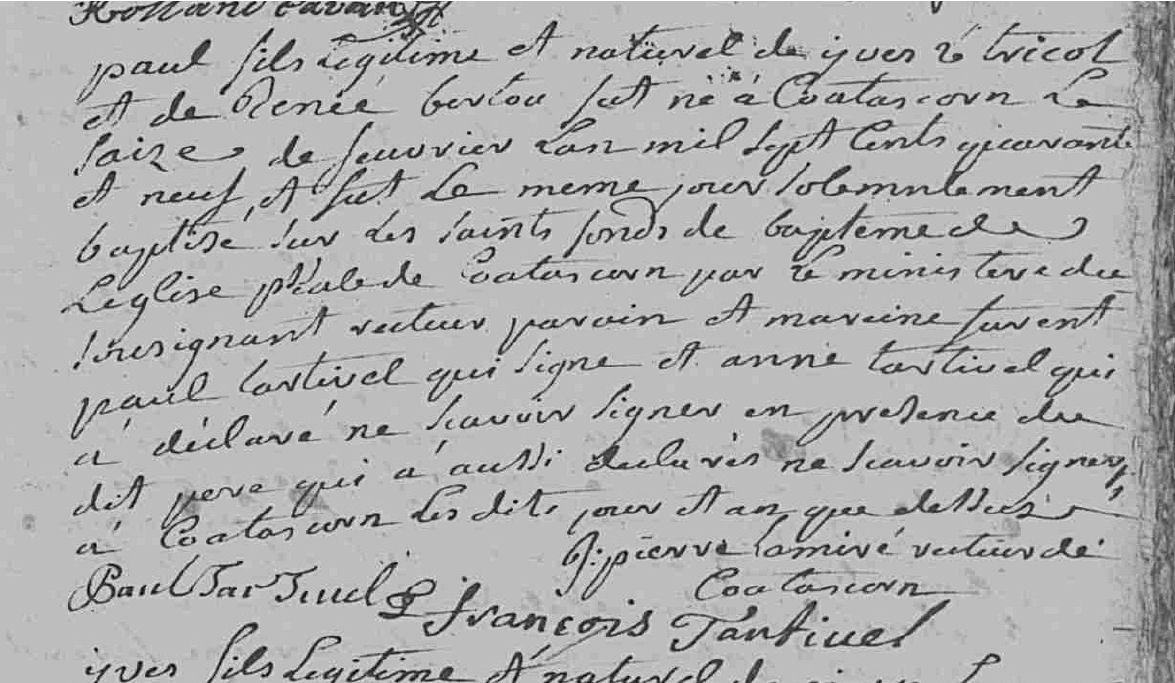 paul fils Legitime et naturel de yves le tricot
et de Renée bertou fut né à Coatascorn Le
saize de feuvrier Lan mil sept Cents quarante
et neuf, et fut Le meme jour solemnlement
baptise sur Les saints fonds de bapteme de
Leglise p̃ale de Coatascorn par le ministere du
sousignant recteur parain et mareine furent
paul tartivel qui signe et anne tartivel qui
a déclaré ne scavoir signer en presence du
dit pere qui a aussi declarés ne scavoir signer
à Coatascorn Les dits jour et an que dessus
pierre lamiré recteur de
Coatascorn
Paul Tartivel
françois Tartivel
yves fils Legitime et naturel de